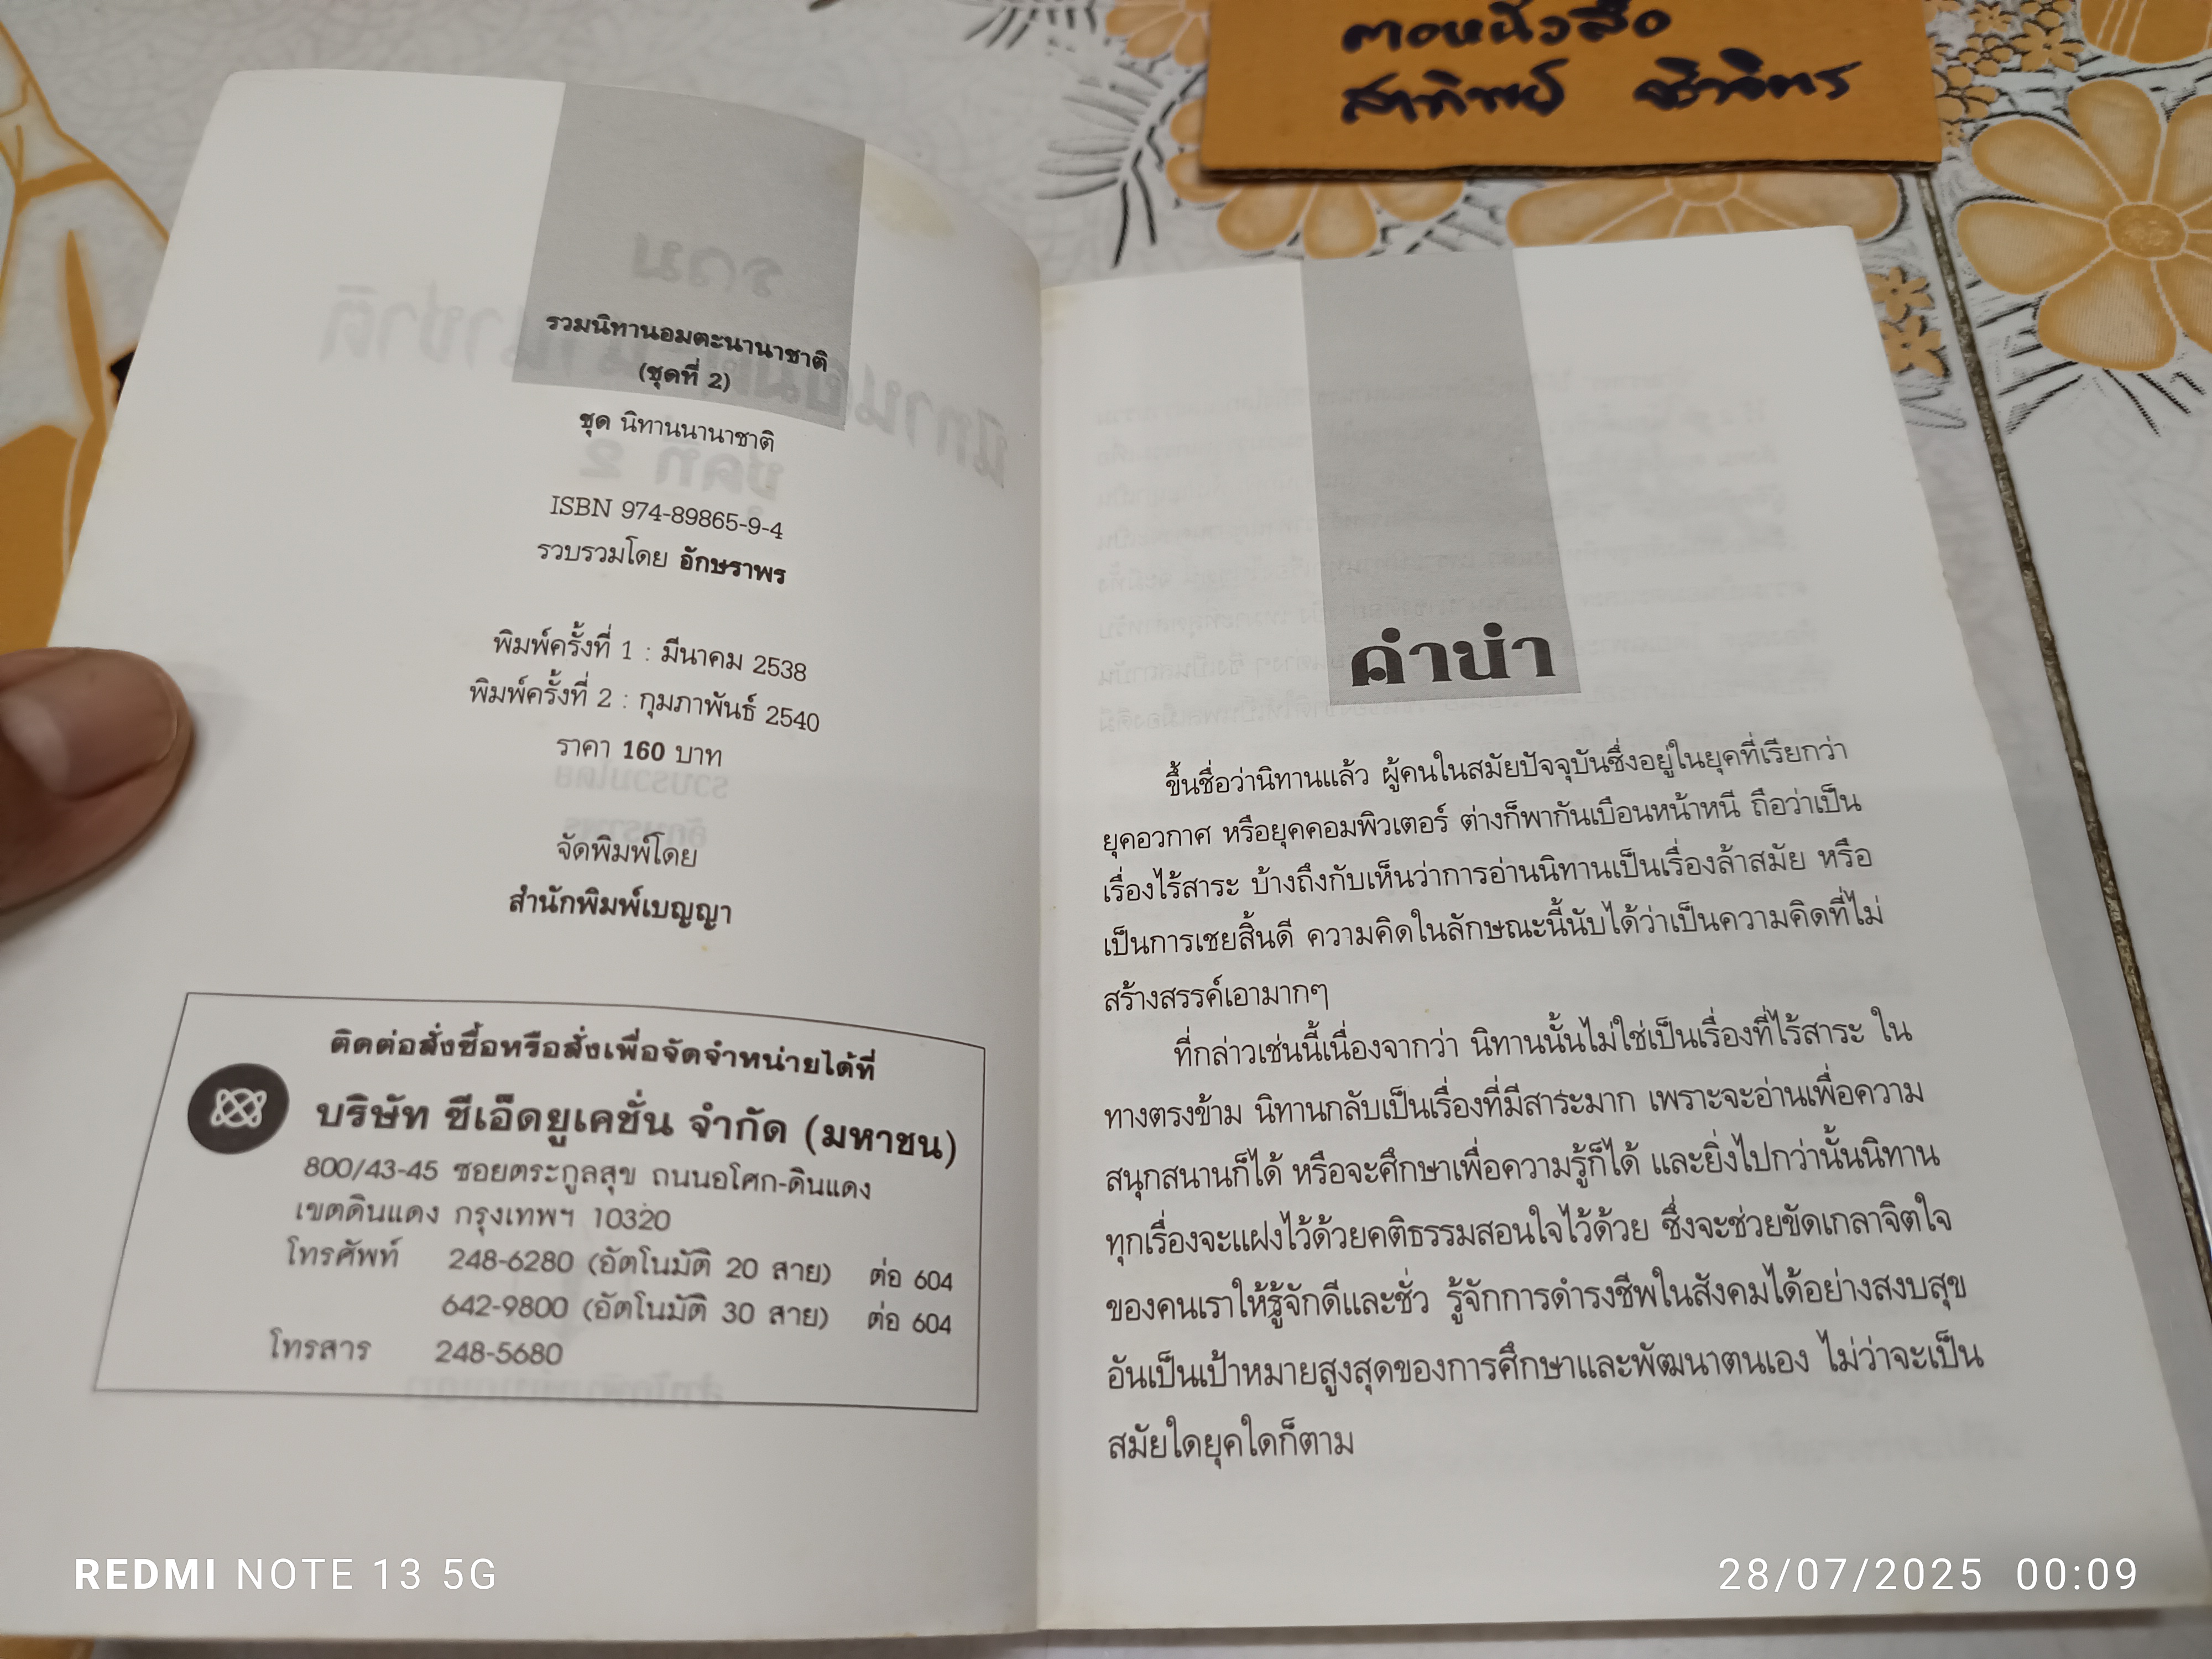 รวมนิทานอมตะนานาชาติ
(ชุดที่ 2)
ชุด นิทานนานาชาติ
ISBN 974-89865-9-4
รวบรวมโดย อักษราพร
พิมพ์ครั้งที่ 1 : มีนาคม 2538
พิมพ์ครั้งที่ 2 : กุมภาพันธ์ 2540
ราคา 160 บาท
จัดพิมพ์โดย
สำนักพิมพ์เบญญา
ติดต่อสั่งซื้อหรือสั่งเพื่อจัดจำหน่ายได้ที่
บริษัท ซีเอ็ดยูเคชั่น จำกัด (มหาชน)
800/43-45 ซอยตระกูลสุข ถนนอโศก-ดินแดง
เขตดินแดง กรุงเทพฯ 10320
โทรศัพท์ 248-6280 (อัตโนมัติ 20 สาย) ต่อ 604
642-9800 (อัตโนมัติ 30 สาย) ต่อ 604
โทรสาร 248-5680
หนังสือ
คำนำ
ขึ้นชื่อว่านิทานแล้ว ผู้คนในสมัยปัจจุบันซึ่งอยู่ในยุคที่เรียกว่า
ยุคอวกาศ หรือยุคคอมพิวเตอร์ ต่างก็พากันเบือนหน้าหนี ถือว่าเป็น
เรื่องไร้สาระ บ้างถึงกับเห็นว่าการอ่านนิทานเป็นเรื่องล้าสมัย หรือ
เป็นการเชยสิ้นดี ความคิดในลักษณะนี้นับได้ว่าเป็นความคิดที่ไม่
สร้างสรรค์เอามากๆ
ที่กล่าวเช่นนี้เนื่องจากว่า นิทานนั้นไม่ใช่เป็นเรื่องที่ไร้สาระ ใน
ทางตรงข้าม นิทานกลับเป็นเรื่องที่มีสาระมาก เพราะจะอ่านเพื่อความ
สนุกสนานก็ได้ หรือจะศึกษาเพื่อความรู้ก็ได้ และยิ่งไปกว่านั้นนิทาน
ทุกเรื่องจะแฝงไว้ด้วยคติธรรมสอนใจไว้ด้วย ซึ่งจะช่วยขัดเกลาจิตใจ
ของคนเราให้รู้จักดีและชั่ว รู้จักการดำรงชีพในสังคมได้อย่างสงบสุข
อันเป็นเป้าหมายสูงสุดของการศึกษาและพัฒนาตนเอง ไม่ว่าจะเป็น
สมัยใดยุคใดก็ตาม
REDMI NOTE 13 5G
28/07/2025 00:09